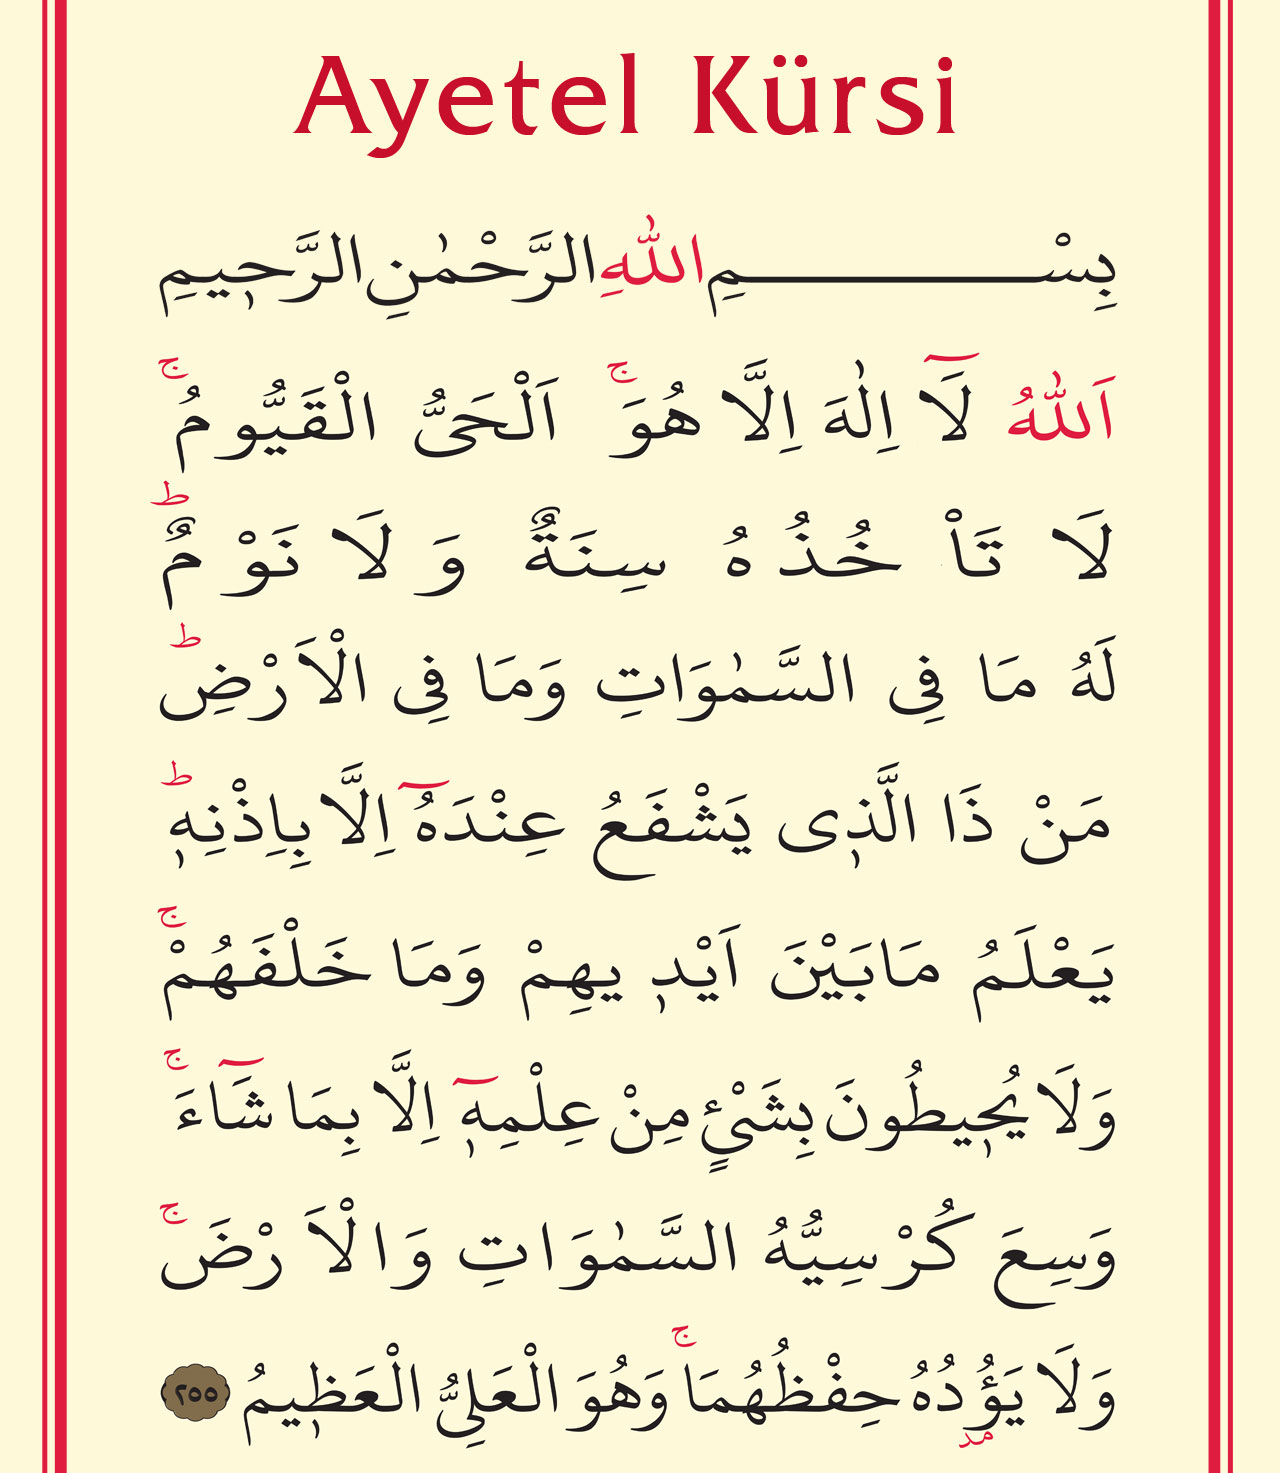 Ayetel Kürsi
بِسْمِ اللّٰهِ الرَّحْمٰنِ الرَّحٖيمِ
اَللّٰهُ لَٓا اِلٰهَ اِلَّا هُوَۚ اَلْحَىُّ الْقَيُّومُۚ
لَا تَاْخُذُهُ سِنَةٌ وَلَا نَوْمٌؕ
لَهُ مَا فِى السَّمٰوَاتِ وَمَا فِى الْاَرْضِؕ
مَنْ ذَا الَّذٖى يَشْفَعُ عِنْدَهُٓ اِلَّا بِاِذْنِهٖؕ
يَعْلَمُ مَابَيْنَ اَيْدٖيهِمْ وَمَا خَلْفَهُمْۚ
وَلَا يُحٖيطُونَ بِشَىْءٍ مِنْ عِلْمِهٖٓ اِلَّا بِمَا شَٓاءَۚ
وَسِعَ كُرْسِيُّهُ السَّمٰوَاتِ وَالْاَرْضَۚ
وَلَا يَؤُدُهُ حِفْظُهُمَاۚ وَهُوَ الْعَلِىُّ الْعَظٖيمُ ٢٥٥
مد